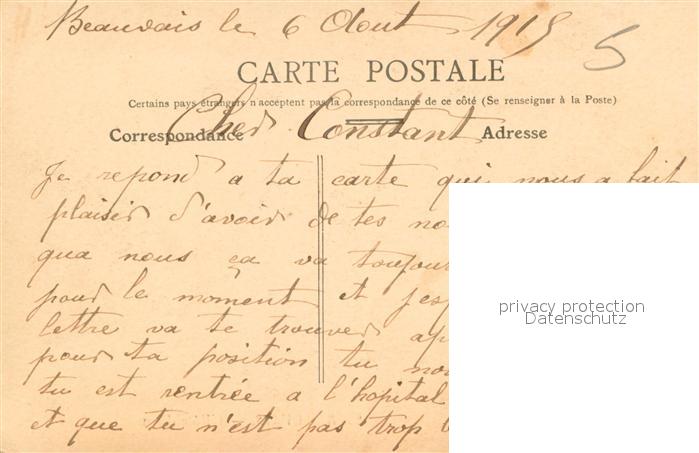 Beauvais le 6 Aout 1915
5
CARTE POSTALE
Certains pays étrangers n'acceptent pas la correspondance de ce côté (Se renseigner à la Poste)
Cher Constant
Correspondance Adresse
Je repond a ta carte qui nous a fait
plaisir d'avoir de tes no
qua nous ça va toujour
pour le moment et j'esp
lettre va te trouver ap
pour ta position tu nou
tu est rentrée a l'hopital
et que tu n'est pas trop b
privacy protection
Datenschutz